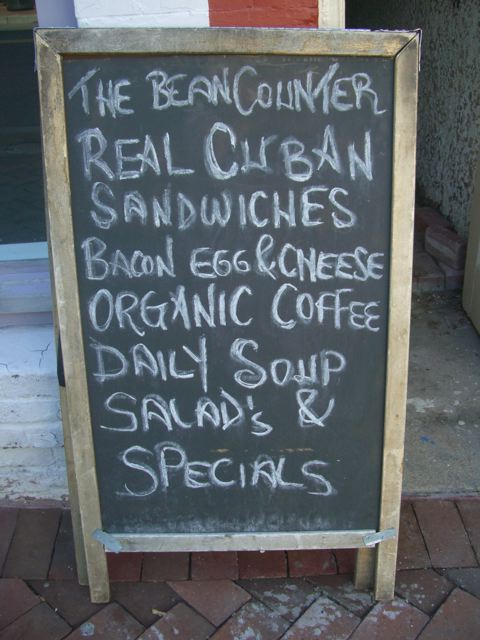 THE BEANCOUNTER
REAL CUBAN
SANDWICHES
BACON EGG & CHEESE
ORGANIC COFFEE
DAILY SOUP
SALAD's &
SPECIALS